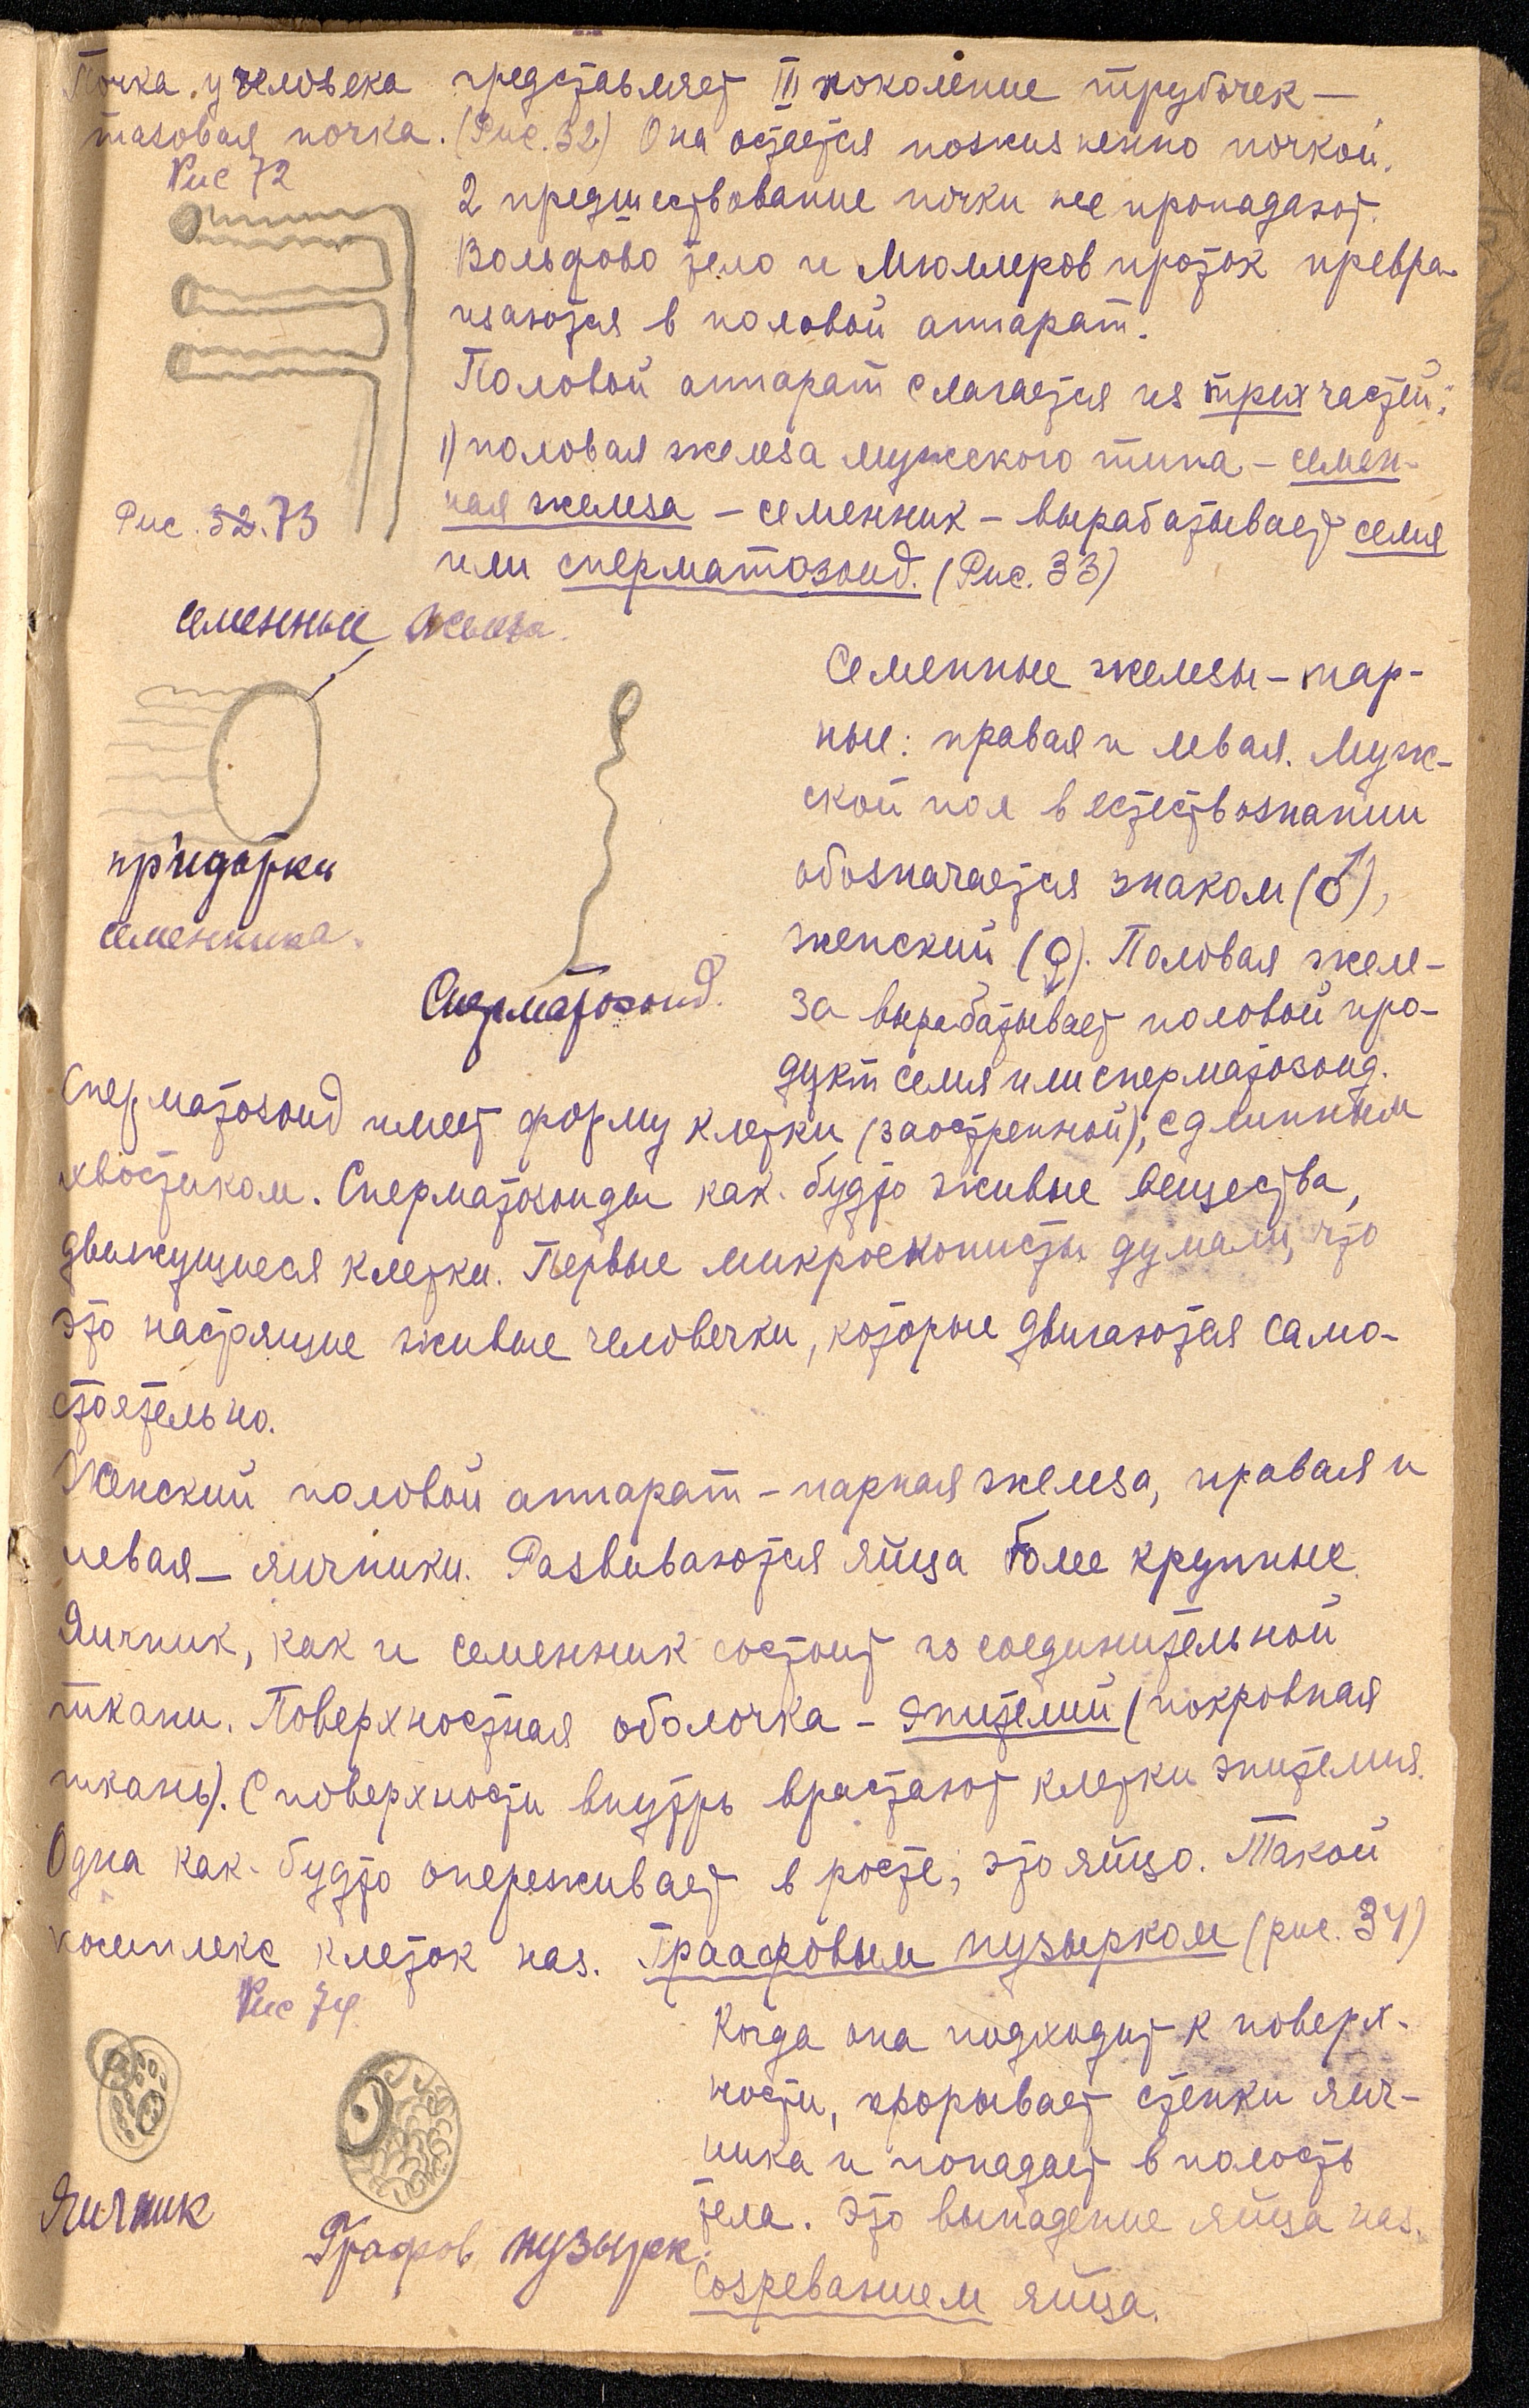 Почка у человека представляет III поколение трубочек —
тазовая почка. (Рис. 32) Она остается пожизненно почкой.
Рис 72
2 предшествование почки ее пропадают.
Вольфово тело и Мюллеров проток превра-
щаются в половой аппарат.
Половой аппарат слагается из трех частей:
1) половая железа мужского типа – семен-
ная железа – семенник – вырабатывает семя
или сперматозоид. (Рис. 33)
Рис. 32. 73
семенные железа.
придатки
семенника.
Сперматозоид.
Семенные железы – пар-
ные: правая и левая. Муж-
ской пол в естествознании
обозначается знаком (♂),
женский (♀). Половая желе-
за вырабатывает половой про-
дукт семя или сперматозоид.
Сперматозоид имеет форму клетки (заостренной), с длинным
хвостиком. Сперматозоиды как-будто живые вещества,
движущиеся клетки. Первые микроскописты думали, что
это настоящие живые человечки, которые двигаются само-
стоятельно.
Женский половой аппарат – парная железа, правая и
левая – яичники. Развиваются яйца более крупные.
Яичник, как и семенник состоит из соединительной
ткани. Поверхностная оболочка – эпителий (покровная
ткань). С поверхности внутрь врастают клетки эпителия.
Одна как-будто опереживает в росте, это яйцо. Такой
комплекс клеток наз. Граафовым пузырком (рис. 34)
Рис 74
Яичник
Графов пузырек.
Когда она подходит к поверх-
ности, прорывает стенки яич-
ника и попадает в полость
тела. Это выпадение яйца наз.
созреванием яйца.